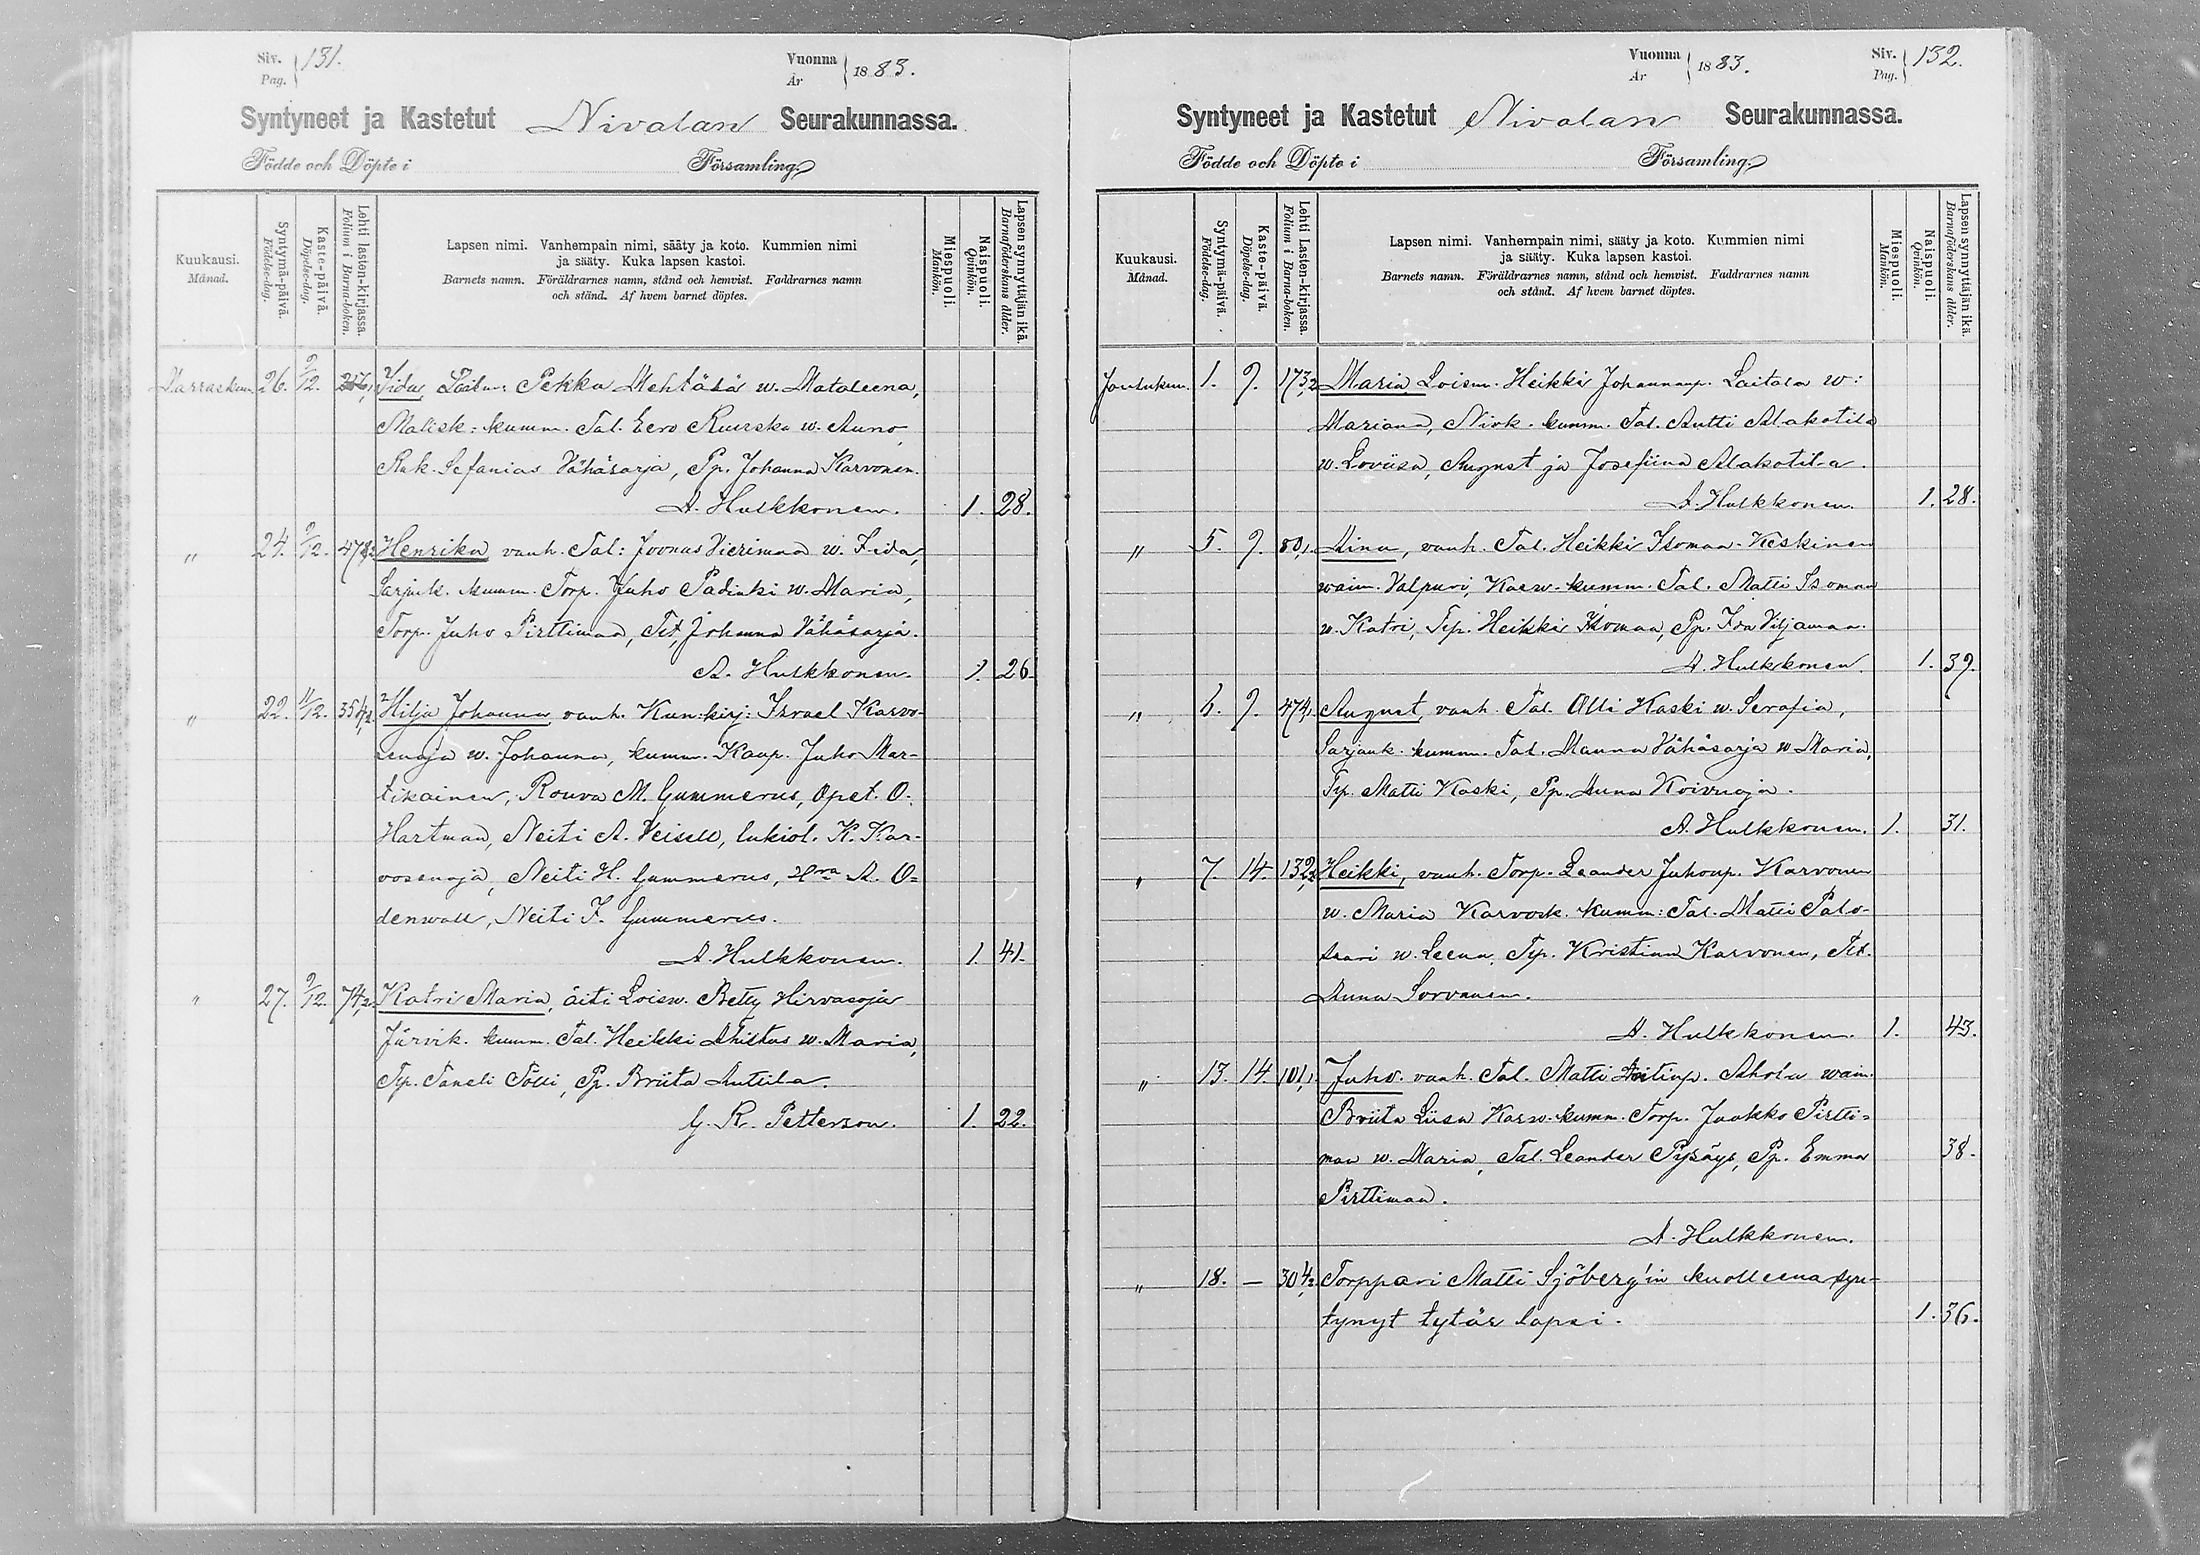 Siv. 131.
Pag.
Vuonna 1883.
År
Syntyneet ja Kastetut Nivalan Seurakunnassa.
Födde och Döpte i Församling.
Kuukausi.
Månad.
Syntymä-päivä.
Födelse-dag.
Kaste-päivä.
Döpelse-dag.
Lehti lasten-kirjassa.
Folium i Barna-boken.
Lapsen nimi. Vanhempain nimi, sääty ja koto. Kummien nimi
ja sääty. Kuka lapsen kastoi.
Barnets namn. Föräldrarnes namn, stånd och hemvist. Faddrarnes namn
och stånd. Af hvem barnet döptes.
Miespuoli.
Mankön.
Naispuoli.
Qvinkön.
Lapsen synnyttäjän ikä.
Barnaföderskans ålder.
Marraskuu 26. 9/12. Iida, Pekka Mehtälä w. Mataleena,
Malisk: kumm. Tal. Eero Ruuska w. Auno,
Rak. Sefanias Vähäsarja, Pp. Johanna Karvonen.
A. Hulkkonen. 1. 28.
" 24. 9/12. Henrika vanh. Tal: Joonas Vierimaa w. Iida,
Sarjank. kumm. Torp. Juho Padinki w. Maria,
Torp. Juho Pirttimaa, Tit. Johanna Vähäsarja.
A. Hulkkonen. 1. 26.
" 22. 11/12. Hilja Johanna vanh. Kun.kirj: Israel Karvo-
senoja w. Johanna, kumm. Kaup. Juho Mar-
tikainen, Rouva M. Gummerus, Opet. O.
Hartman, Neiti A. Veisell, lukiol. K. Kar-
vosenoja, Neiti H. Gummerus, Hra A. O=
denwall, Neiti F. Gummerus.
A. Hulkkonen. 1. 41.
" 27. 9/12. 74,2. Katri Maria, äiti Loisn. Betty Hirvasoja
Järvik. kumm. Tal. Heikki Ahlstus w. Maria,
Typ. Taneli Tölli, Pp. Briita Anttila.
G. R. Petterson. 1. 22.
Vuonna 1883.
År
Siv. 132.
Pag.
Syntyneet ja Kastetut Nivalan Seurakunnassa.
Födde och Döpte i Församling.
Kuukausi.
Månad.
Syntymä-päivä.
Födelse-dag.
Kaste-päivä.
Döpelse-dag.
Lehti Lasten-kirjassa.
Folium i Barna-boken.
Lapsen nimi. Vanhempain nimi, sääty ja koto. Kummien nimi
ja sääty. Kuka lapsen kastoi.
Barnets namn. Föräldrarnes namn, stånd och hemvist. Faddrarnes namn
och stånd. Af hvem barnet döptes.
Miespuoli.
Mankön.
Naispuoli.
Qvinkön.
Lapsen synnyttäjän ikä.
Barnaföderskans ålder.
Joulukuu. 1. 9. 173,2 Maria, Loism. Heikki Johannanp. Laitala w:
Mariana, Nivk. kumm. Tal. Antti Alakotila
w. Loviisa, August ja Josefiina Alakotila.
A. Hulkkonen. 1. 28.
" 5. 9. 80,1 Aina, vanh. Tal. Heikki Isomaa-Keskinen
waim. Valpuri, Karw. kumm. Tal. Matti Isomaa
w. Katri, Typ. Heikki Isomaa, Pp. Ida Viljamaa.
A. Hulkkonen. 1. 39.
" 6. 9. 474,1 August, vanh. Tal. Olli Kaski w. Serafia,
Sarjank. kumm. Tal. Manna Vähäsarja w Maria,
Typ. Matti Kaski, Pp. Anna Koivuoja.
A. Hulkkonen. 1. 31.
" 7. 14. 132,2 Heikki, vanh. Torp. Leander Juhonp. Karvonen
w. Maria Karvosk. kumm: Tal. Matti Palo-
saari w. Leena, Typ. Kristian Karvonen, Tit.
Anna Sorvanen.
A. Hulkkonen. 1. 43.
" 13. 14. 101,1 Juho. vanh. Tal. Matti Antinp. Ahola waim.
Briita Liisa Karw. kumm. Torp. Jaakko Pirtti=
maa w. Maria, Tal. Leander Pysäys, Pp. Emma 38.
Pirttimaa.
A. Hulkkonen.
" 18. — 304,2 Torppari Matti Sjöberg'in kuolleena syn-
tynyt tytär lapsi. 1. 36.